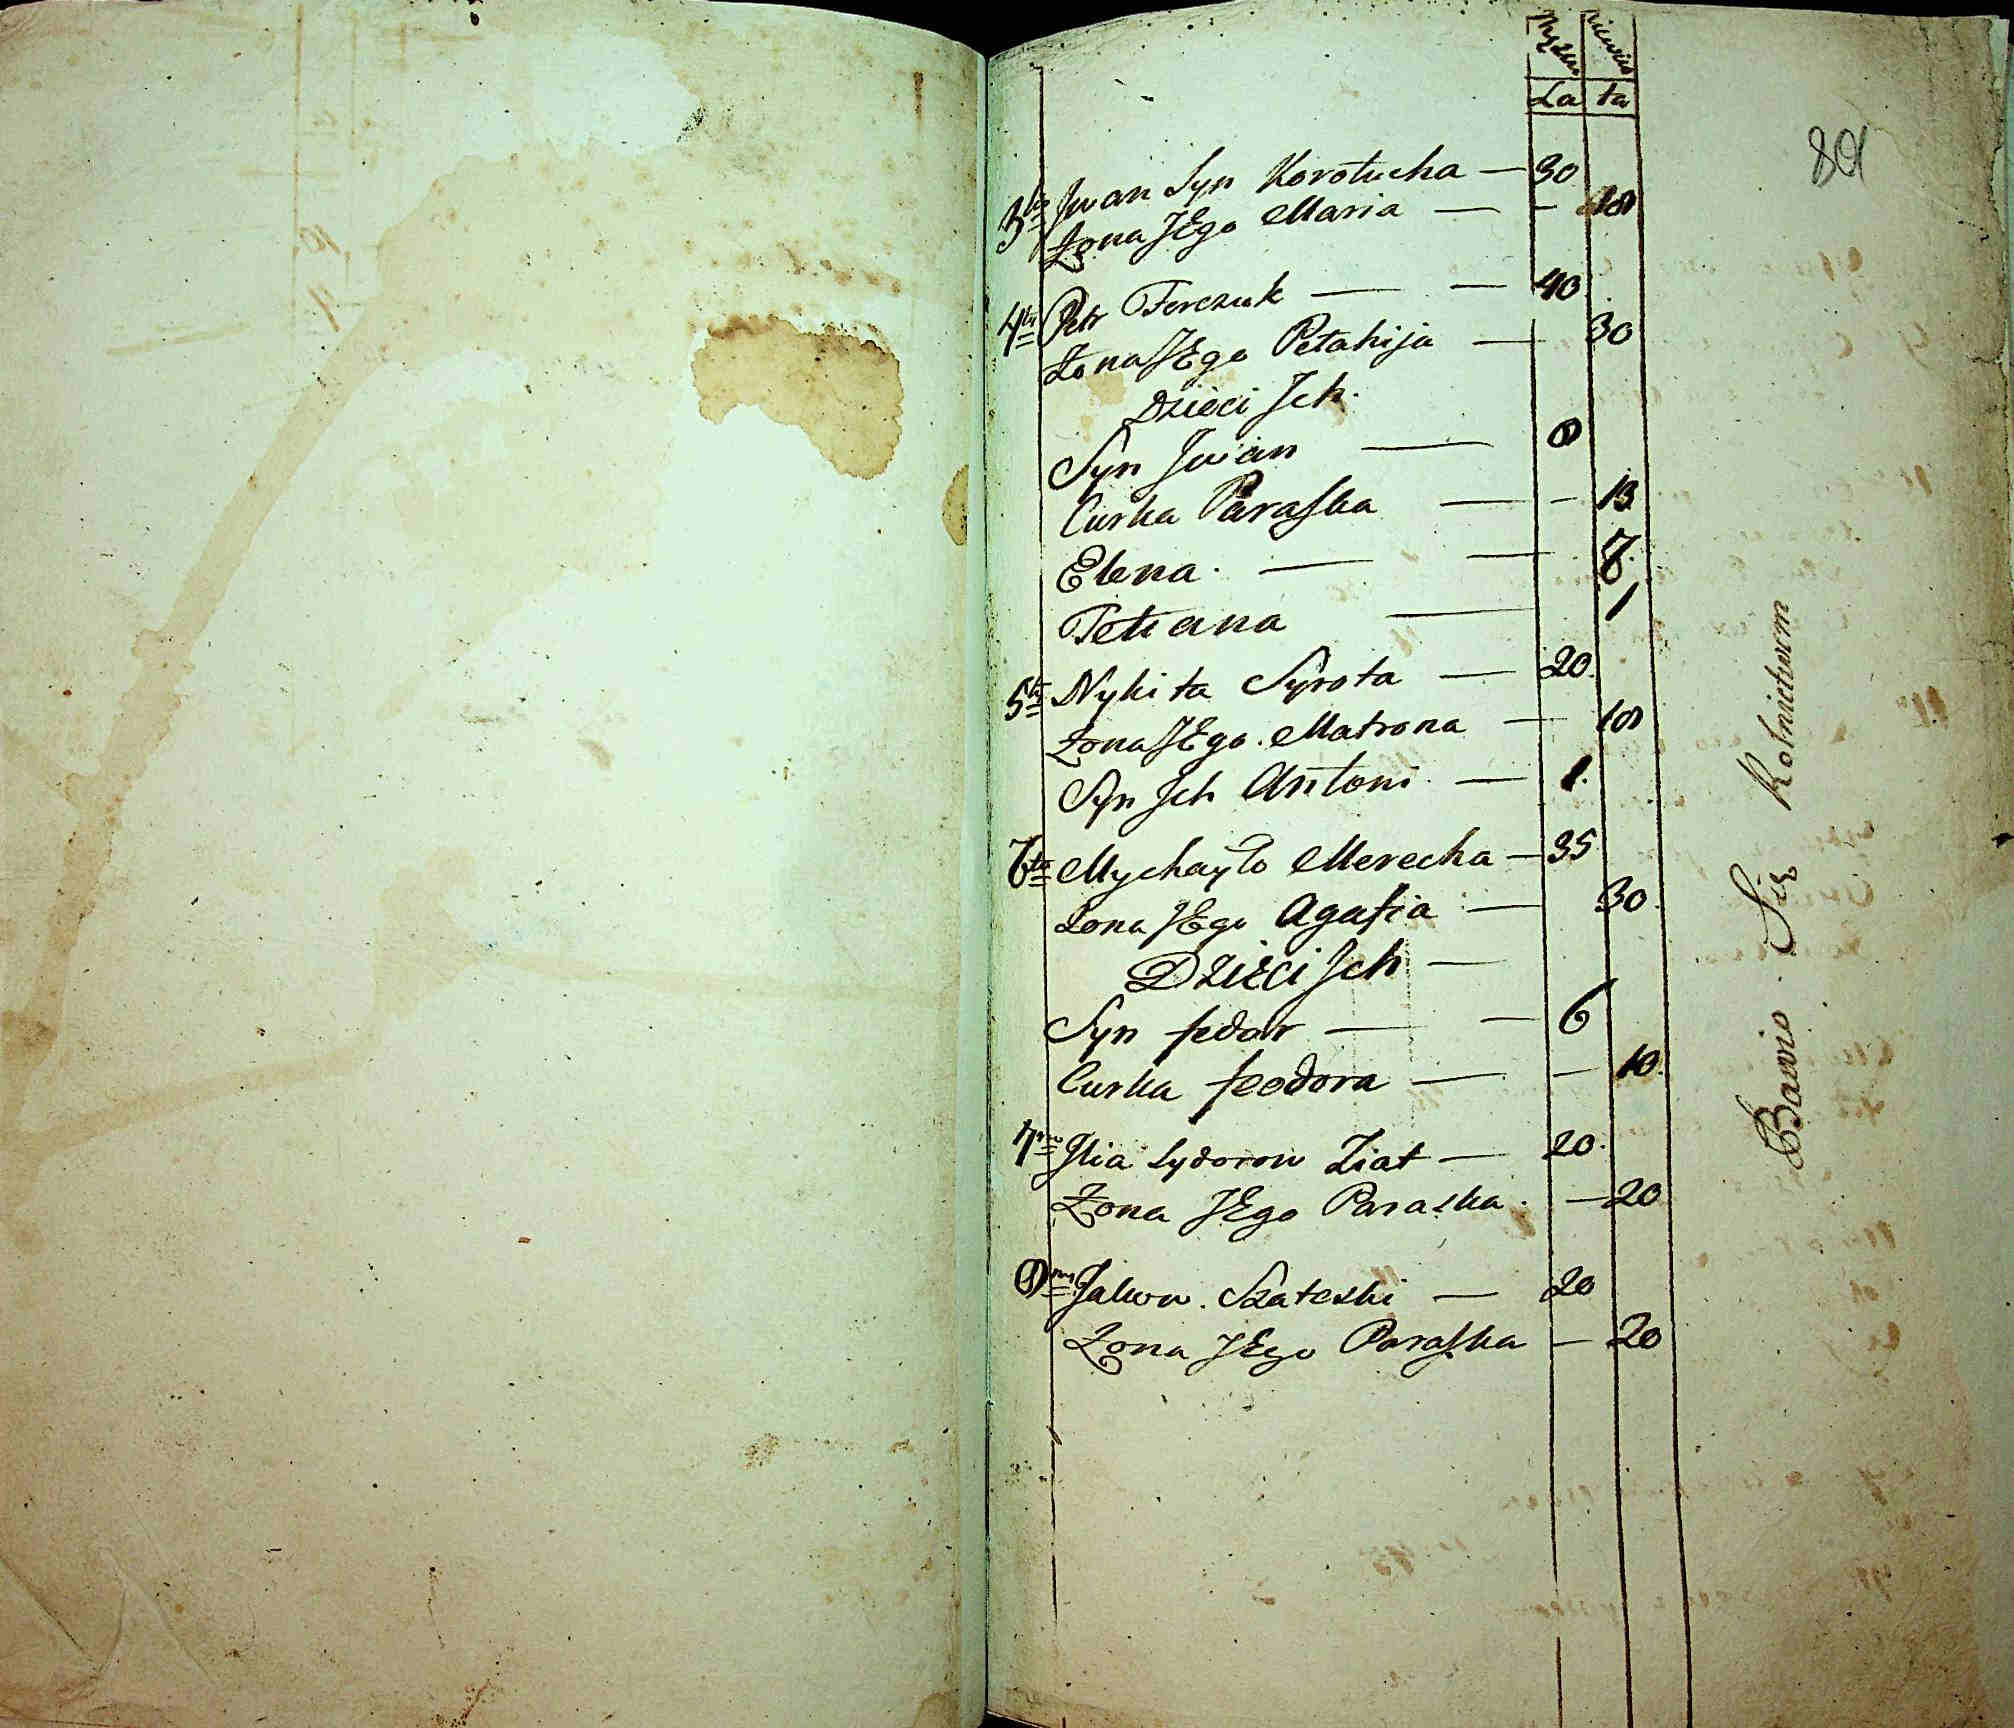 Męzkie Niewie
La ta
801
3tie Jwan Syn Korotucha — 30
Żona JEgo Maria — — 18
4te Petr Ferczuk — — 40
Żona JEgo Petahija — 30
Dzieci Jch.
Syn Jwan — 8
Curka Paraska — — 13
Elena. — — 7.
Tetiana — 1
5te Nykita Syrota — 20.
Żona JEgo. Matrona — 18
Syn Jch Antoni — 1.
6te Mychayło Merecha — 35
Żona JEgo Agafia — 30.
Dzieci Jch —
Syn fedor — — 6
Curka feodora — — 10.
7me Jlia Sydorow Ziat — 20.
Żona JEgo Paraska. — 20
8me Jakow. Szateski — 20
Żona JEgo Paraska — 20
Bawio Się Rolnictwem